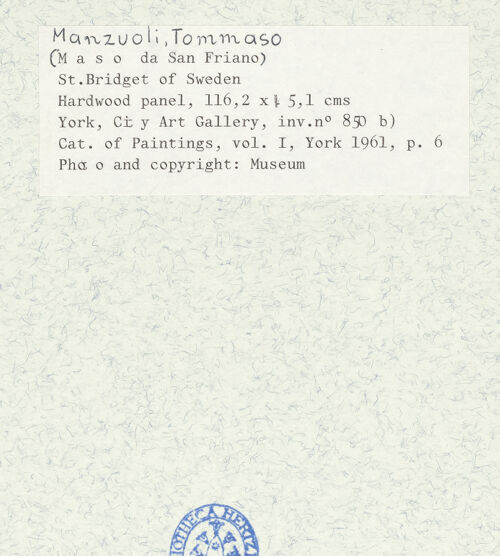 Manzuoli, Tommaso
(M a s o da San Friano)
St.Bridget of Sweden
Hardwood panel, 116,2 x 5,1 cms
York, City Art Gallery, inv.nº 850 b)
Cat. of Paintings, vol. I, York 1961, p. 6
Photo and copyright: Museum
IOTHECA HERTZI